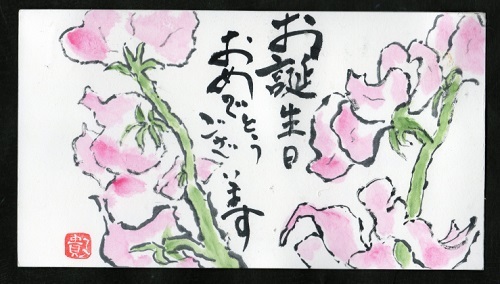 お誕生日
おめでとう
ございます
貴